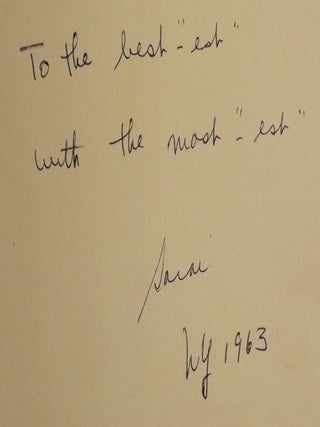 To the best-"est"
with the most-"est"
NY 1963